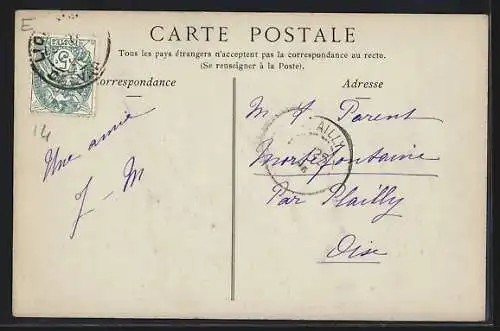 E
CARTE POSTALE
Tous les pays étrangers n'acceptent pas la correspondance au recto.
(Se renseigner à la Poste).
Correspondance
Adresse
14
Une amie
J - M
M J Parent
Mortefontaine
Par Plailly
Oise
AILLY